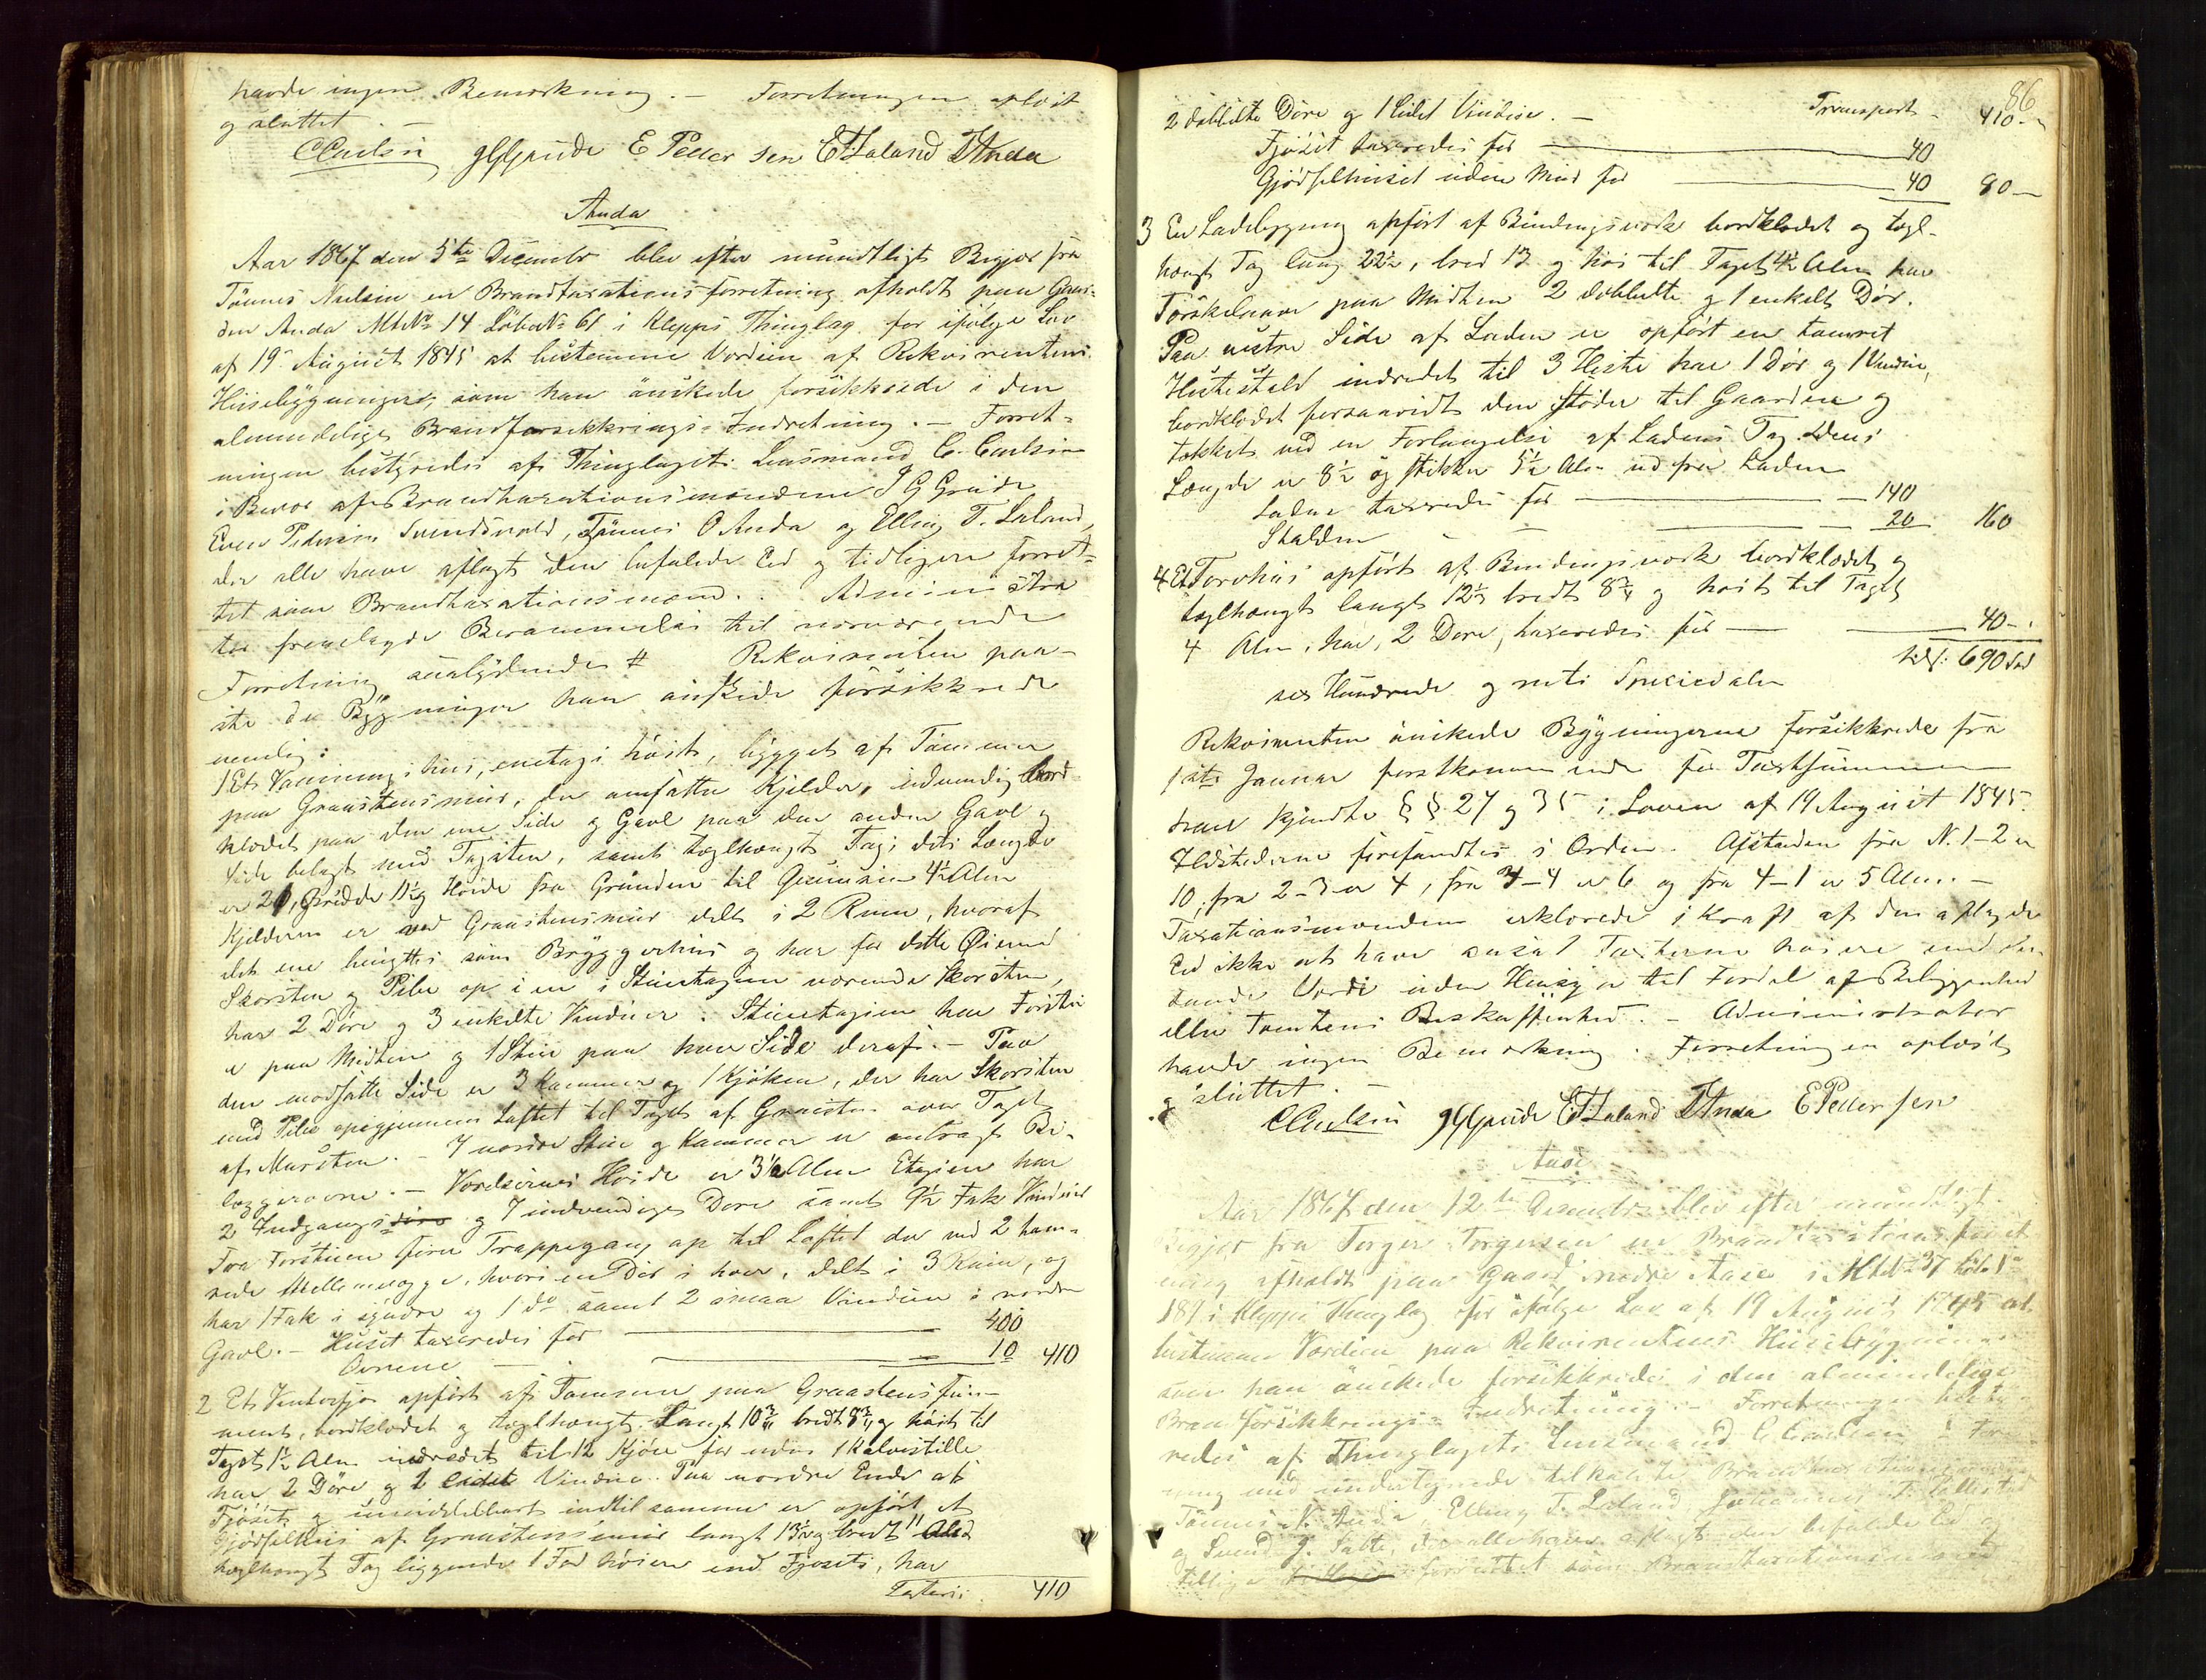 havde ingen Bemærkning. — Forretningen oplæst
og sluttet. —
CCarlsen E Peder sen ETLaland TAnda
Anda
Aar 1867 den 5te December blev efter mundtligt Begjær fra
Tønnes Nielsen en Brandtaxationsforretning afholdt paa Gaar-
den Anda Mt№ 14 Løbe№ 61 i Klepps Thinglag for ifølge Lov
af 19 August 1845 at bestemme Værdien af Rekvirentens
Huusebygninger, som han ønskede forsikkrede i den
almindelige Brandforsikkrings-Indretning. — Forret-
ningen bestyredes af Thinglagets Lensmand C. Carlsen
i Overvær af Brandtaxationsmændene J G Grude
Even Pedersen Svendsvold, Tønnes O Anda og Elling T. Laland,
der alle have aflagt den befalede Ed og tidligere forret-
tet som Brandtaxationsmænd. Administra
tor fremlagde Berammelse til nærværende
Forretning saalydende # Rekvirenten paa-
viste de Bygninger han ønskede forsikkrede
nemlig:
1 Et Vaaningshus, enetages høit, bygget af Tømmer
paa Graastensmur, der omfatter Kjelder, udvendig bord
klædet paa den ene Side og Gavl paa den anden Gavl og
Side belagt med Tagsten, samt teglhængt Tag; dets Længde
er 21, Bredde 11½ og Høide fra Grunden til Gesimsen 4½ Alen
Kjelderen er ved Graastensmur delt i 2 Rum, hvoraf
det ene benyttes som Bryggerhus og har for dette Øiemed
Skorsten og Pibe op i en i Stueetagen værende Skorsten,
har 2 Døre og 3 enkelte Vinduer. Stueetagen har Forstue
er paa Midten og 1 Stue paa hver Side deraf. — Paa
den modsatte Side er 3 Kammer og 1 Kjøken, der har Skorsten
med Pibe opigjennem Loftet til Taget af Graasten over Taget
af Mursten. — I nordre Stue og Kammer er anbragt Bi-
læggerovne. — Værelsernes Høide er 3½ Alen Etagen har
2 Indgangsdøre og 7 indvendige Døre samt 9½ Fak Vinduer
Fra Forstuen fører Trappegang op til Loftet der ved 2 tøm-
rede Mellemvægge, hvori en Dør i hver, delt i 3 Rum, og
har 1 Fak i søndre og 1 do samt 2 smaa Vinduer i nordre
Gavl. — Huset taxeredes for — 400
Ovnene — 10 410
2 Et Vinterfjøs opført af Tømmer paa Graastensfun-
ment, bordklædet og teglhængt. Langt 10¾ bredt 8¾ og høit til
Taget 1½ Alen indredet til 12 Kjør foruden 1 Kalvestille
har 2 Døre og 2 Vindue. Paa nordre Ende af
Fjøset og umiddelbart indtil samme er opført et
Gjødselhus af Graastensmur langt 13½ og bredt 11 Alen
teglhængt Tag liggende 1 Fod høiere end Fjøsets, har
Lateris: 410
86
2 dobbelte Døre og 1 lidet Vindue. — Transport — 410 —
Fjøset taxeredes for — 40
Gjødselhuset uden Mur for — 40 80 —
3 En Ladebygning opført af Bindingsværk bordklædet og tegl-
hængt Tag lang 22½, bred 13 og høi til Taget 4½ Alen har
Tørskelaave paa Midten 2 dobbelte og 1 enkelt Dør.
Paa vestre Side af Laden er opført en tømret
Hestestald indredet til 3 Heste har 1 Dør og 1 Vindue,
bordklædet forsaavidt den støder til Gaarden og
tækket ved en Forlængelse af Ladens Tag. Dens
Længde er 8½ og stikker 5½ Alen ud fra Laden
Laden taxeredes for — 140
Stalden — 20 160
4 Et Torvhus opført af Bindingsværk bordklædet og
teglhængt langt 12½ bredt 8¾ og høit til Taget
4 Alen, har 2 Døre, taxeredes for — 40 —
tils: 690 Spd
sex Hundrede og niti Speciedaler
Rekvirenten ønskede Bygningerne forsikkrede fra
1ste Januar førstkommende for Taxtsummen
han kjendte §§ 27 og 35 i Loven af 19 August 1845.
Ildstederne forefandtes i Orden. Afstanden fra N. 1-2 er
10, fra 2-3 er 4, fra 3-4 er 6 og fra 4-1 er 5 Alen. —
Taxationsmændene erklærede i Kraft af den aflagde
Ed ikke at have ansat Taxterne høiere end den
sande Værdi uden Hensyn til Fordel af Beliggenhed
eller Tomtens Beskaffenhed. — Administrator
havde ingen Bemærkning. Forretningen oplæst
og sluttet. —
CCarlsen ETLaland TAnda EPeder sen
Aase
Aar 1867 den 12te December blev efter mundtligt
Begjær fra Torger Torgersen en Brandtaxationsforret
ning afholdt paa Gaard nedre Aase Mt№ 37 Løb№
189 i Klepps Thinglag for ifølge Lov af 19 August 1845 at
bestemme Værdien paa Rekvirentens Huusebygninger
som han ønskede forsikkrede i den almindelige
Brandforsikkrings-Indretning. — Forretningen besty-
redes af Thinglagets Lensmand C Carlsen i For
ning med undertegnede tilkaldte Brandtaxationsmænd
Tønnes N. Anda, Elling T. Laland, Johannes
og Svend der alle have aflagt den befalede Ed og
tillige forrettet som Brandtaxationsmænd